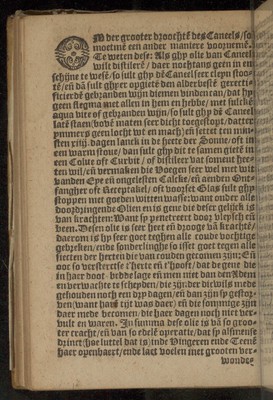 OM der grooter droochte des Caneels, so
moetmē een ander maniere voornemē.
Te weten dese: Als ghy olie van Caneel
wilt distilerē, daer nochtans geen in en
schijne te wesē, so sult ghy dē Caneel seer cleyn stoo-
tē, eñ dā sult ghy er opgietē den alderbestē gerecti-
ficierdē gebranden wijn
geen flegma met allen in hem en hebbe, met sulckē
aqua vite oft gebranden wijn, so sult ghy dē Caneel
latē staen, bovē maten seer dicht toegestopt, dat ter
nymmers geen locht wt en mach, eñ settet ten min-
sten xiiij. dagen lanck in de heete der Sonne, oft in
een warm stoue, dan sult ghy dit te samen gietē in
een Colue oft Curbit, oft distileer vat
ten wil, eñ vermaken die Voegen seer wel met wit
vanden Eye eñ ongelesten Calcke, eñ anden Ont-
fangher oft Receptakel, oft voorset Glas sult ghy
stoppen met goeden witten wasse: want onder alle
doordringende Olien en is gene die deser gelijck is
van krachten: Want sy penetreert door vleysch eñ
been. Desen olie is seer heet eñ drooge vā krachtē,
daerom is hy seer goet teghen alle coude vochtige
gebreken, ende sonderlinghe so isset goet tegen alle
siecten der herten die van couden gecomen zijn: Eñ
ooc so verstercktse t'herte eñ t'hooft, dat de gene die
in haer doot-bedde lage eñ men niet dan den Adem
en verwachte te scheyden, die zijn der diewils mede
gehouden noch een dry dagen, eñ dan zijn sy gestor-
ven, (want haer tijt was daer) eñ die sommige zijn
daer mede becomen, die haer dagen noch niet ver-
vult en waren. In summa dese olie is vā so groo-
ter cracht, eñ van so edele operatie, dat sy
drinct, (hoe luttel dat is) inde Vingeren ende Teenē
haer openbaert, ende laet voelen met grooten ver-
wonde-